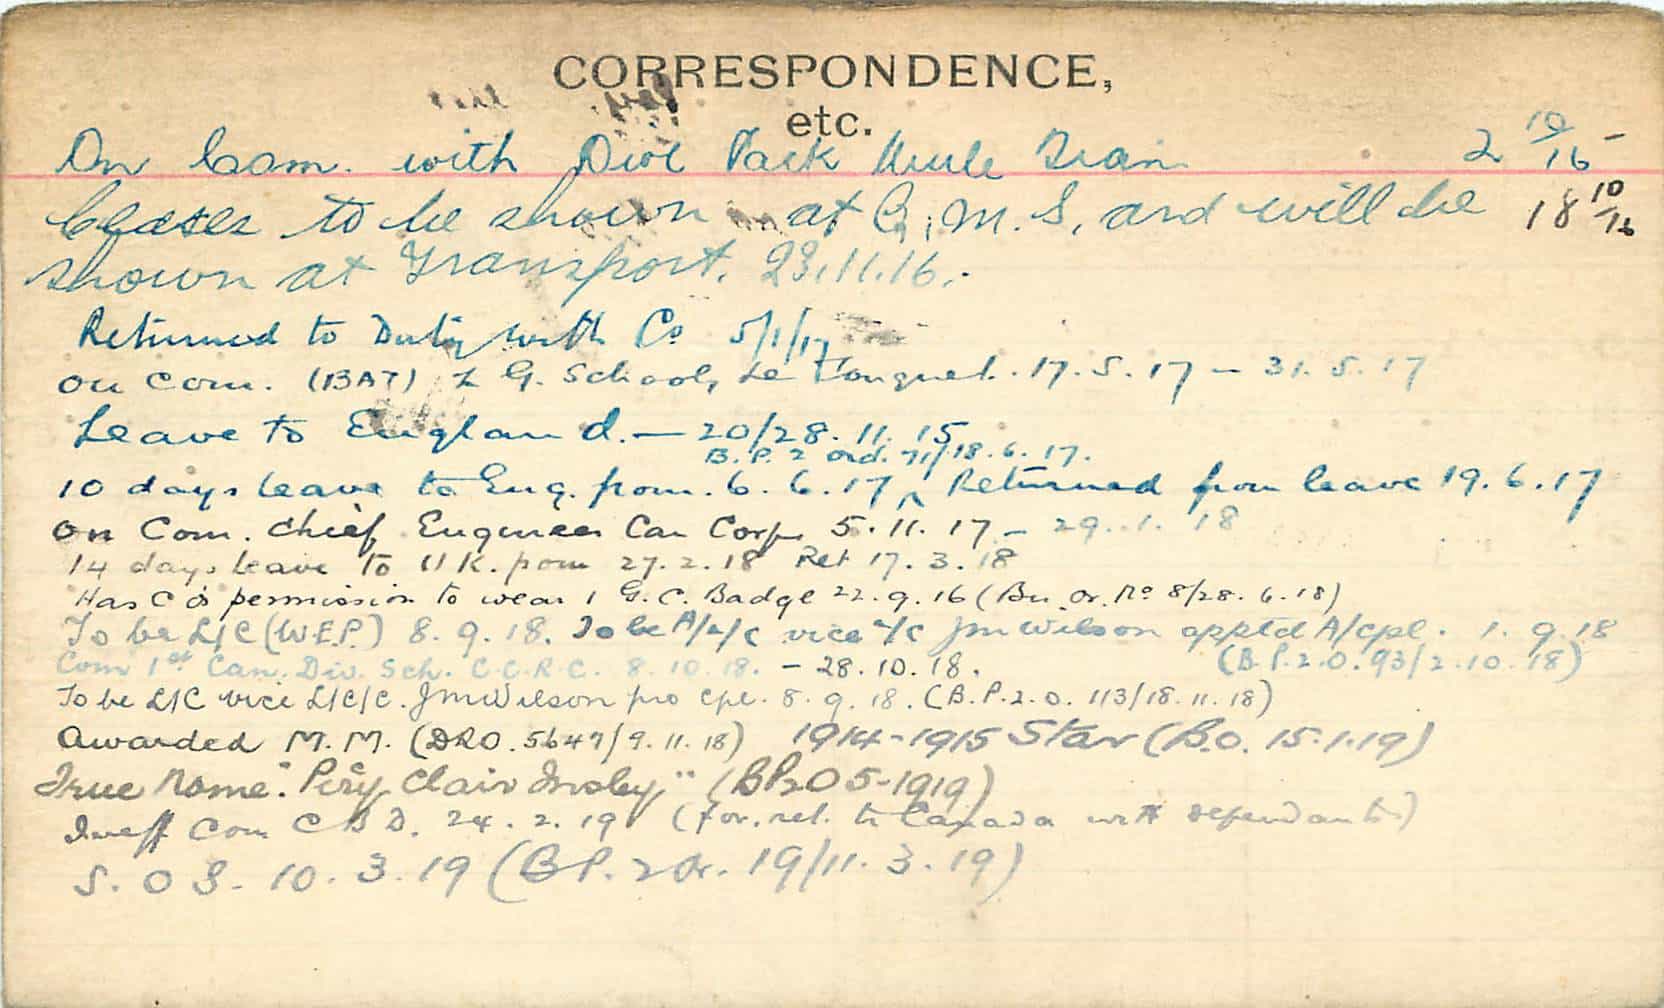 CORRESPONDENCE,
etc.
On Com. with Divl Pack Mule Train 2 10/16 -
Ceases to be shown at Q.M.S, and will be 18 10/16
shown at Transport. 23.11.16.
Returned to Duty with Co 5/1/17
on Com. (BAT) L G. School, Le Touquet. 17.5.17 - 31.5.17
Leave to England. — 20/28.11.15
B.P. 2 Ord. 71/18.6.17.
10 days leave to Eng. from. 6.6.17 ^ Returned from leave 19.6.17
On Com. Chief Engineer Can Corp 5.11.17 - 29.1.18
14 days leave to U K. from 27.2.18 Ret 17.3.18
Has C O's permission to wear 1 G.C. Badge 22.9.16 (Bn. Or. No 8/28.6.18)
To be L/C (W.E.P.) 8.9.18. To be A/L/C vice L/C J M Wilson apptd A/Cpl. 1.9.18
(B.P.2.O.93/2.10.18)
Com 1st Can. Div. Sch. C.C.R.C. 8.10.18. - 28.10.18.
To be L/C vice L/C/C. J M Wilson pro Cpl. 8.9.18. (B.P.2.O. 113/18.11.18)
Awarded M.M. (DRO.5647/9.11.18) 1914-1915 Star (B.O. 15.1.19)
True Name. "Percy Clair Insley" (BP2O 5-1919)
Ineff Com C B D. 24.2.19 (For. ret. to Canada with dependants)
S.O S. 10.3.19 (B P. 2 Or. 19/11.3.19)